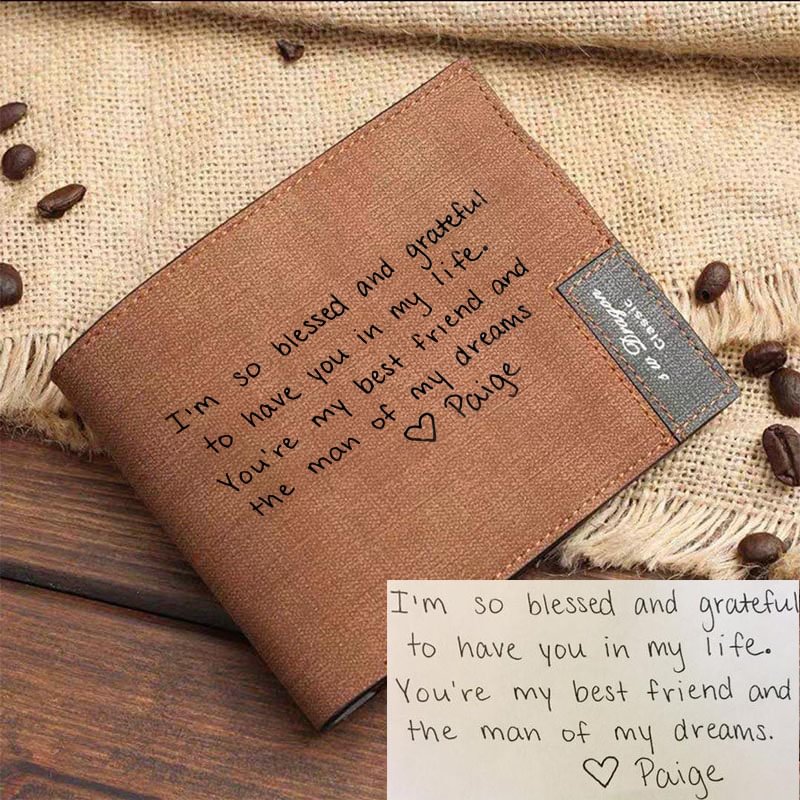 I'm so blessed and grateful
to have you in my life.
You're my best friend and
the man of my dreams
♡ Paige
s w Dragon
Classic
I'm so blessed and grateful
to have you in my life.
You're my best friend and
the man of my dreams.
♡ Paige